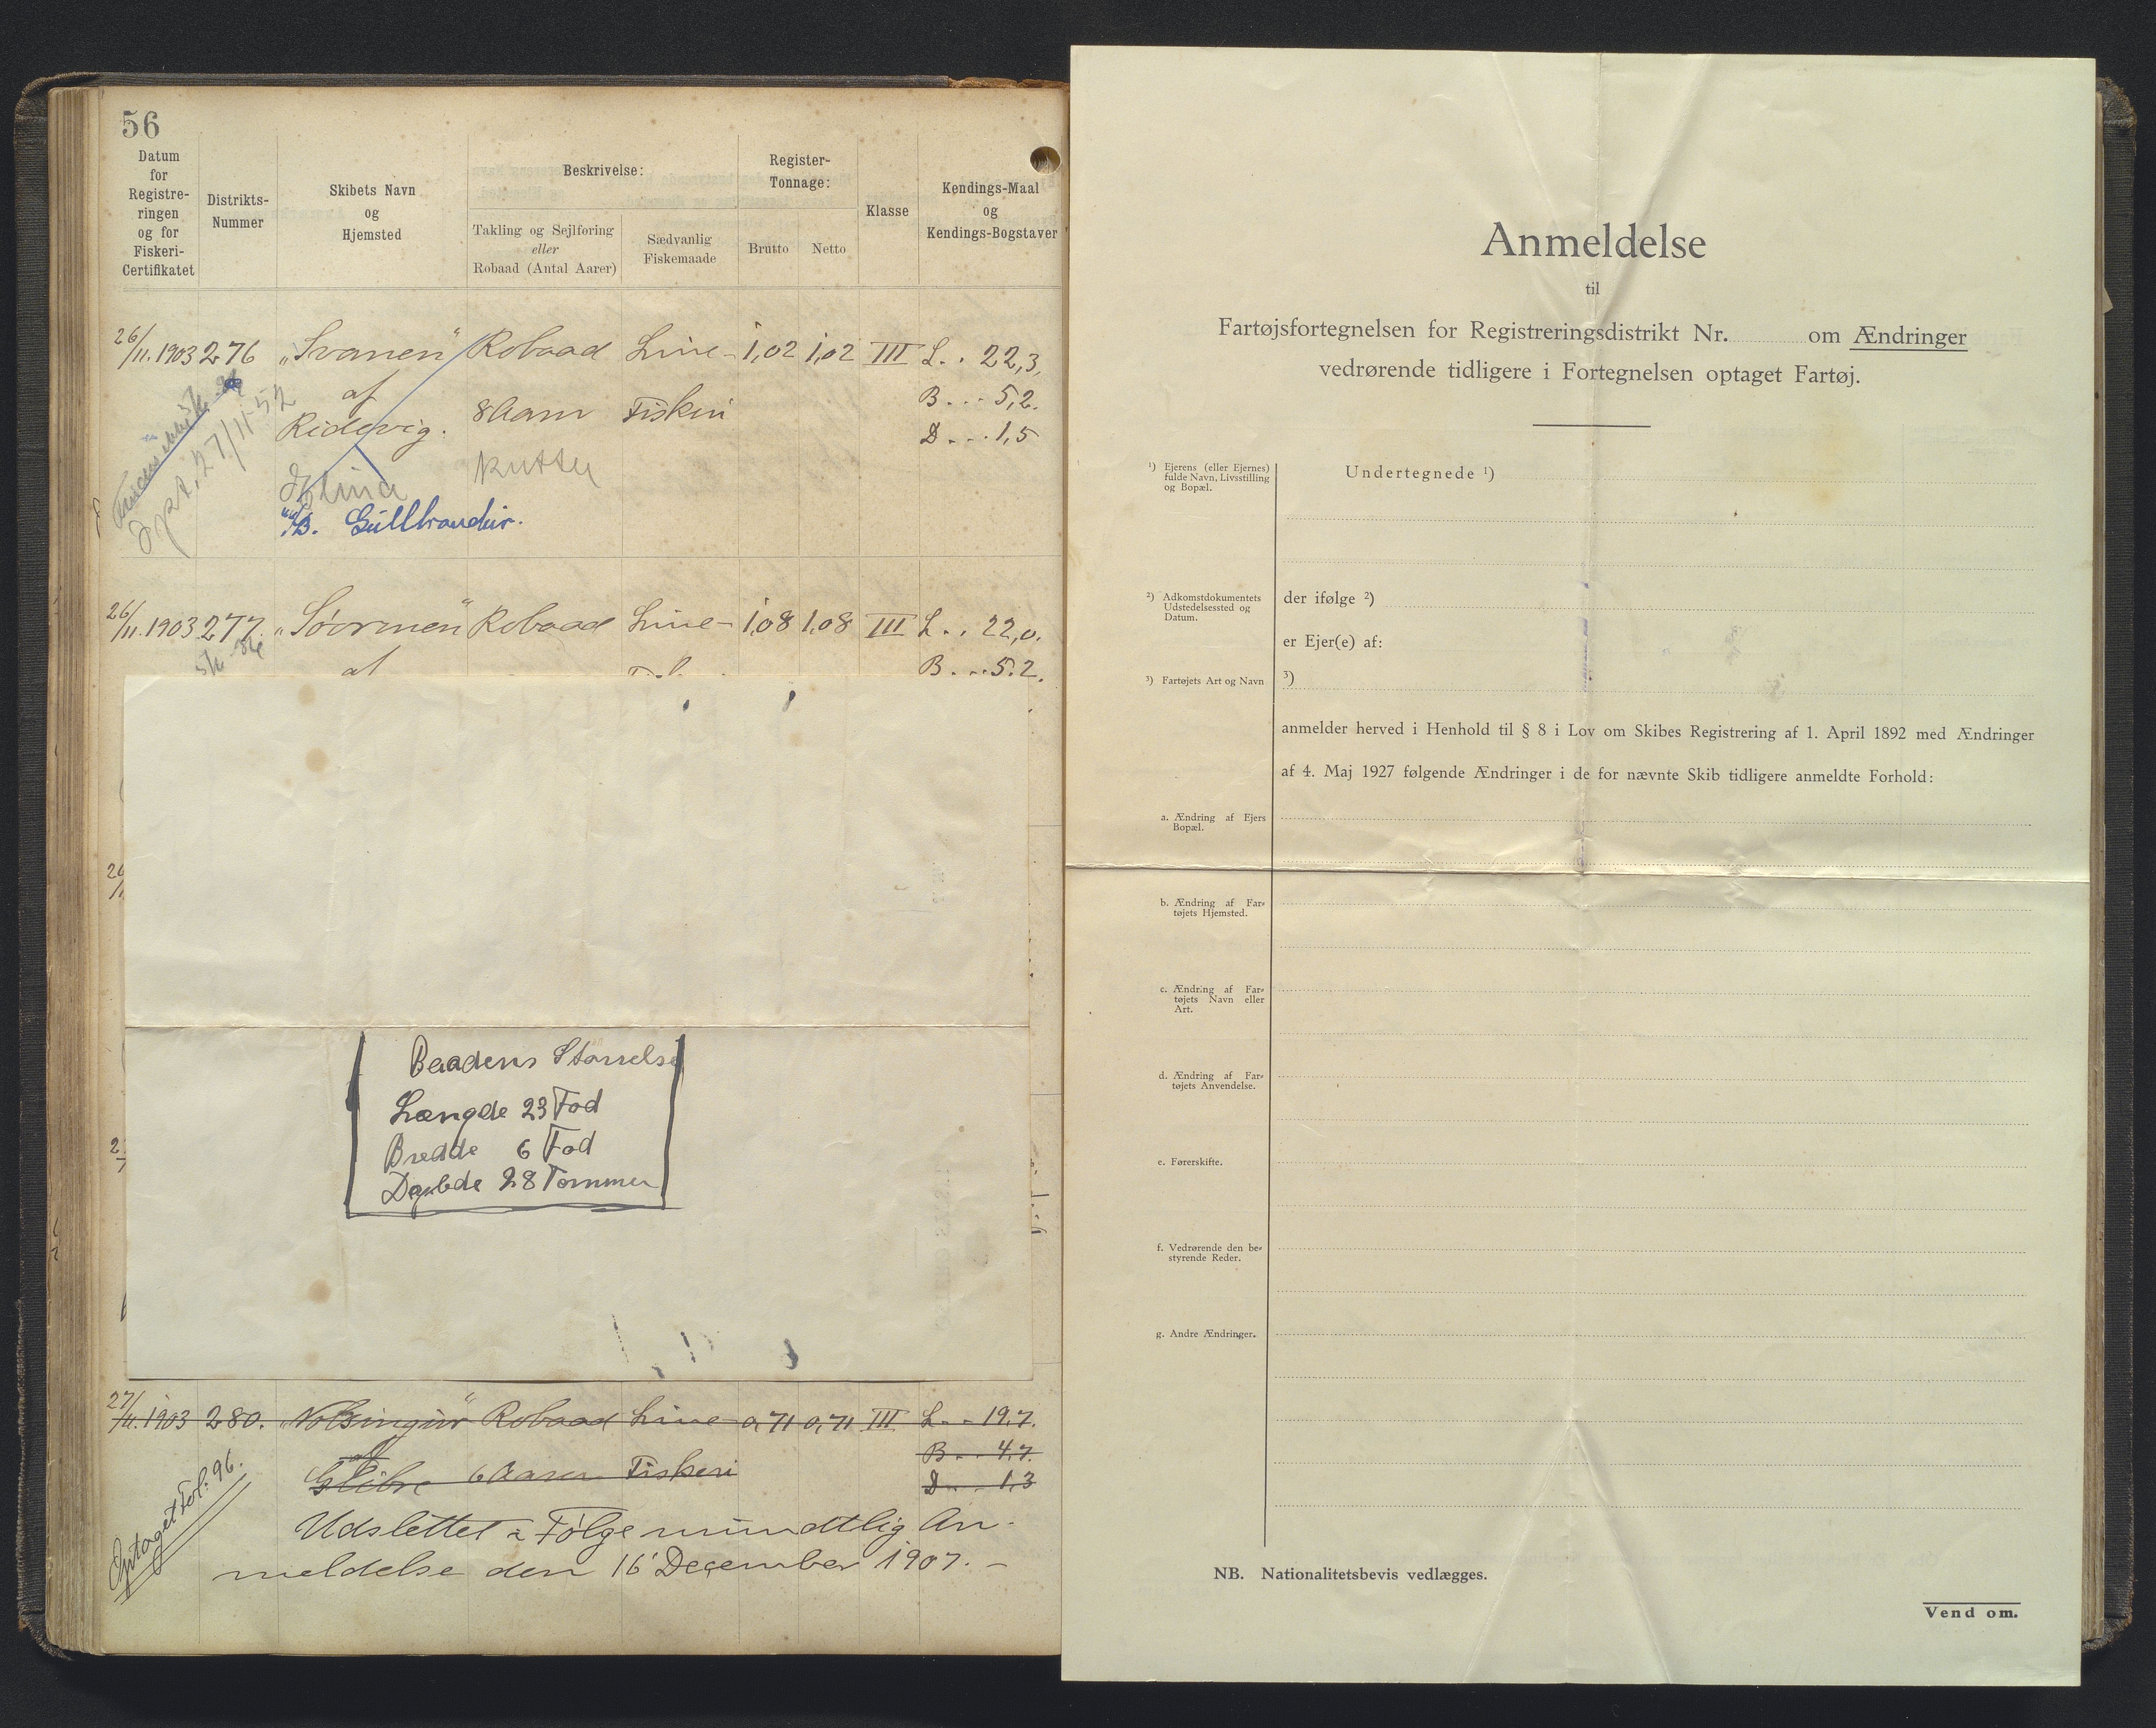 56
Datum
for
Registre-
ringen
og for
Fiskeri-
Certifikatet
Distrikts-
Nummer
Skibets Navn
og
Hjemsted
Beskrivelse:
Takling og Sejlføring
eller
Robaad (Antal Aarer)
Sædvanlig
Fiskemaade
Register-
Tonnage:
Brutto
Netto
Klasse
Kendings-Maal
og
Kendings-Bogstaver
26/11. 1903 276 „Svanen" Robaad Line- 1,02 1,02 III L. . 22,3,
af 8 Aarer Fiskeri B. . . 5,2.
Ridevig. D . . . 1,5
27/11-52
Kutter
Gullbrandur.
26/11. 1903 277. Robaad Line- 1,08 1,08 III L. . 22,0.
af B. . . 5.2.
Baadens Størrelse
Længde 23 Fod
Bredde 6 Fod
Dybde 28 Tommer
27/11. 1903 280. Robaad Line- 0,71 0,71 III L. . . 19,7.
af B . . . 4,7.
Glibre 6 Aarer Fiskeri D . . . 1,3
Optaget Fol: 96.
Udslettet i Følge mundtlig An-
meldelse den 16' December 1907. -
Anmeldelse
til
Fartøjsfortegnelsen for Registreringsdistrikt Nr. om Ændringer
vedrørende tidligere i Fortegnelsen optaget Fartøj.
¹) Ejerens (eller Ejernes)
fulde Navn, Livsstilling
og Bopæl.
Undertegnede ¹)
²) Adkomstdokumentets
Udstedelsessted og
Datum.
der ifølge ²)
er Ejer(e) af:
³) Fartøjets Art og Navn
³)
anmelder herved i Henhold til § 8 i Lov om Skibes Registrering af 1. April 1892 med Ændringer
af 4. Maj 1927 følgende Ændringer i de for nævnte Skib tidligere anmeldte Forhold:
a. Ændring af Ejers
Bopæl.
b. Ændring af Far-
tøjets Hjemsted.
c. Ændring af Far-
tøjets Navn eller
Art.
d. Ændring af Far-
tøjets Anvendelse.
e. Førerskifte.
f. Vedrørende den be-
styrende Reder.
g. Andre Ændringer.
NB. Nationalitetsbevis vedlægges.
Vend om.